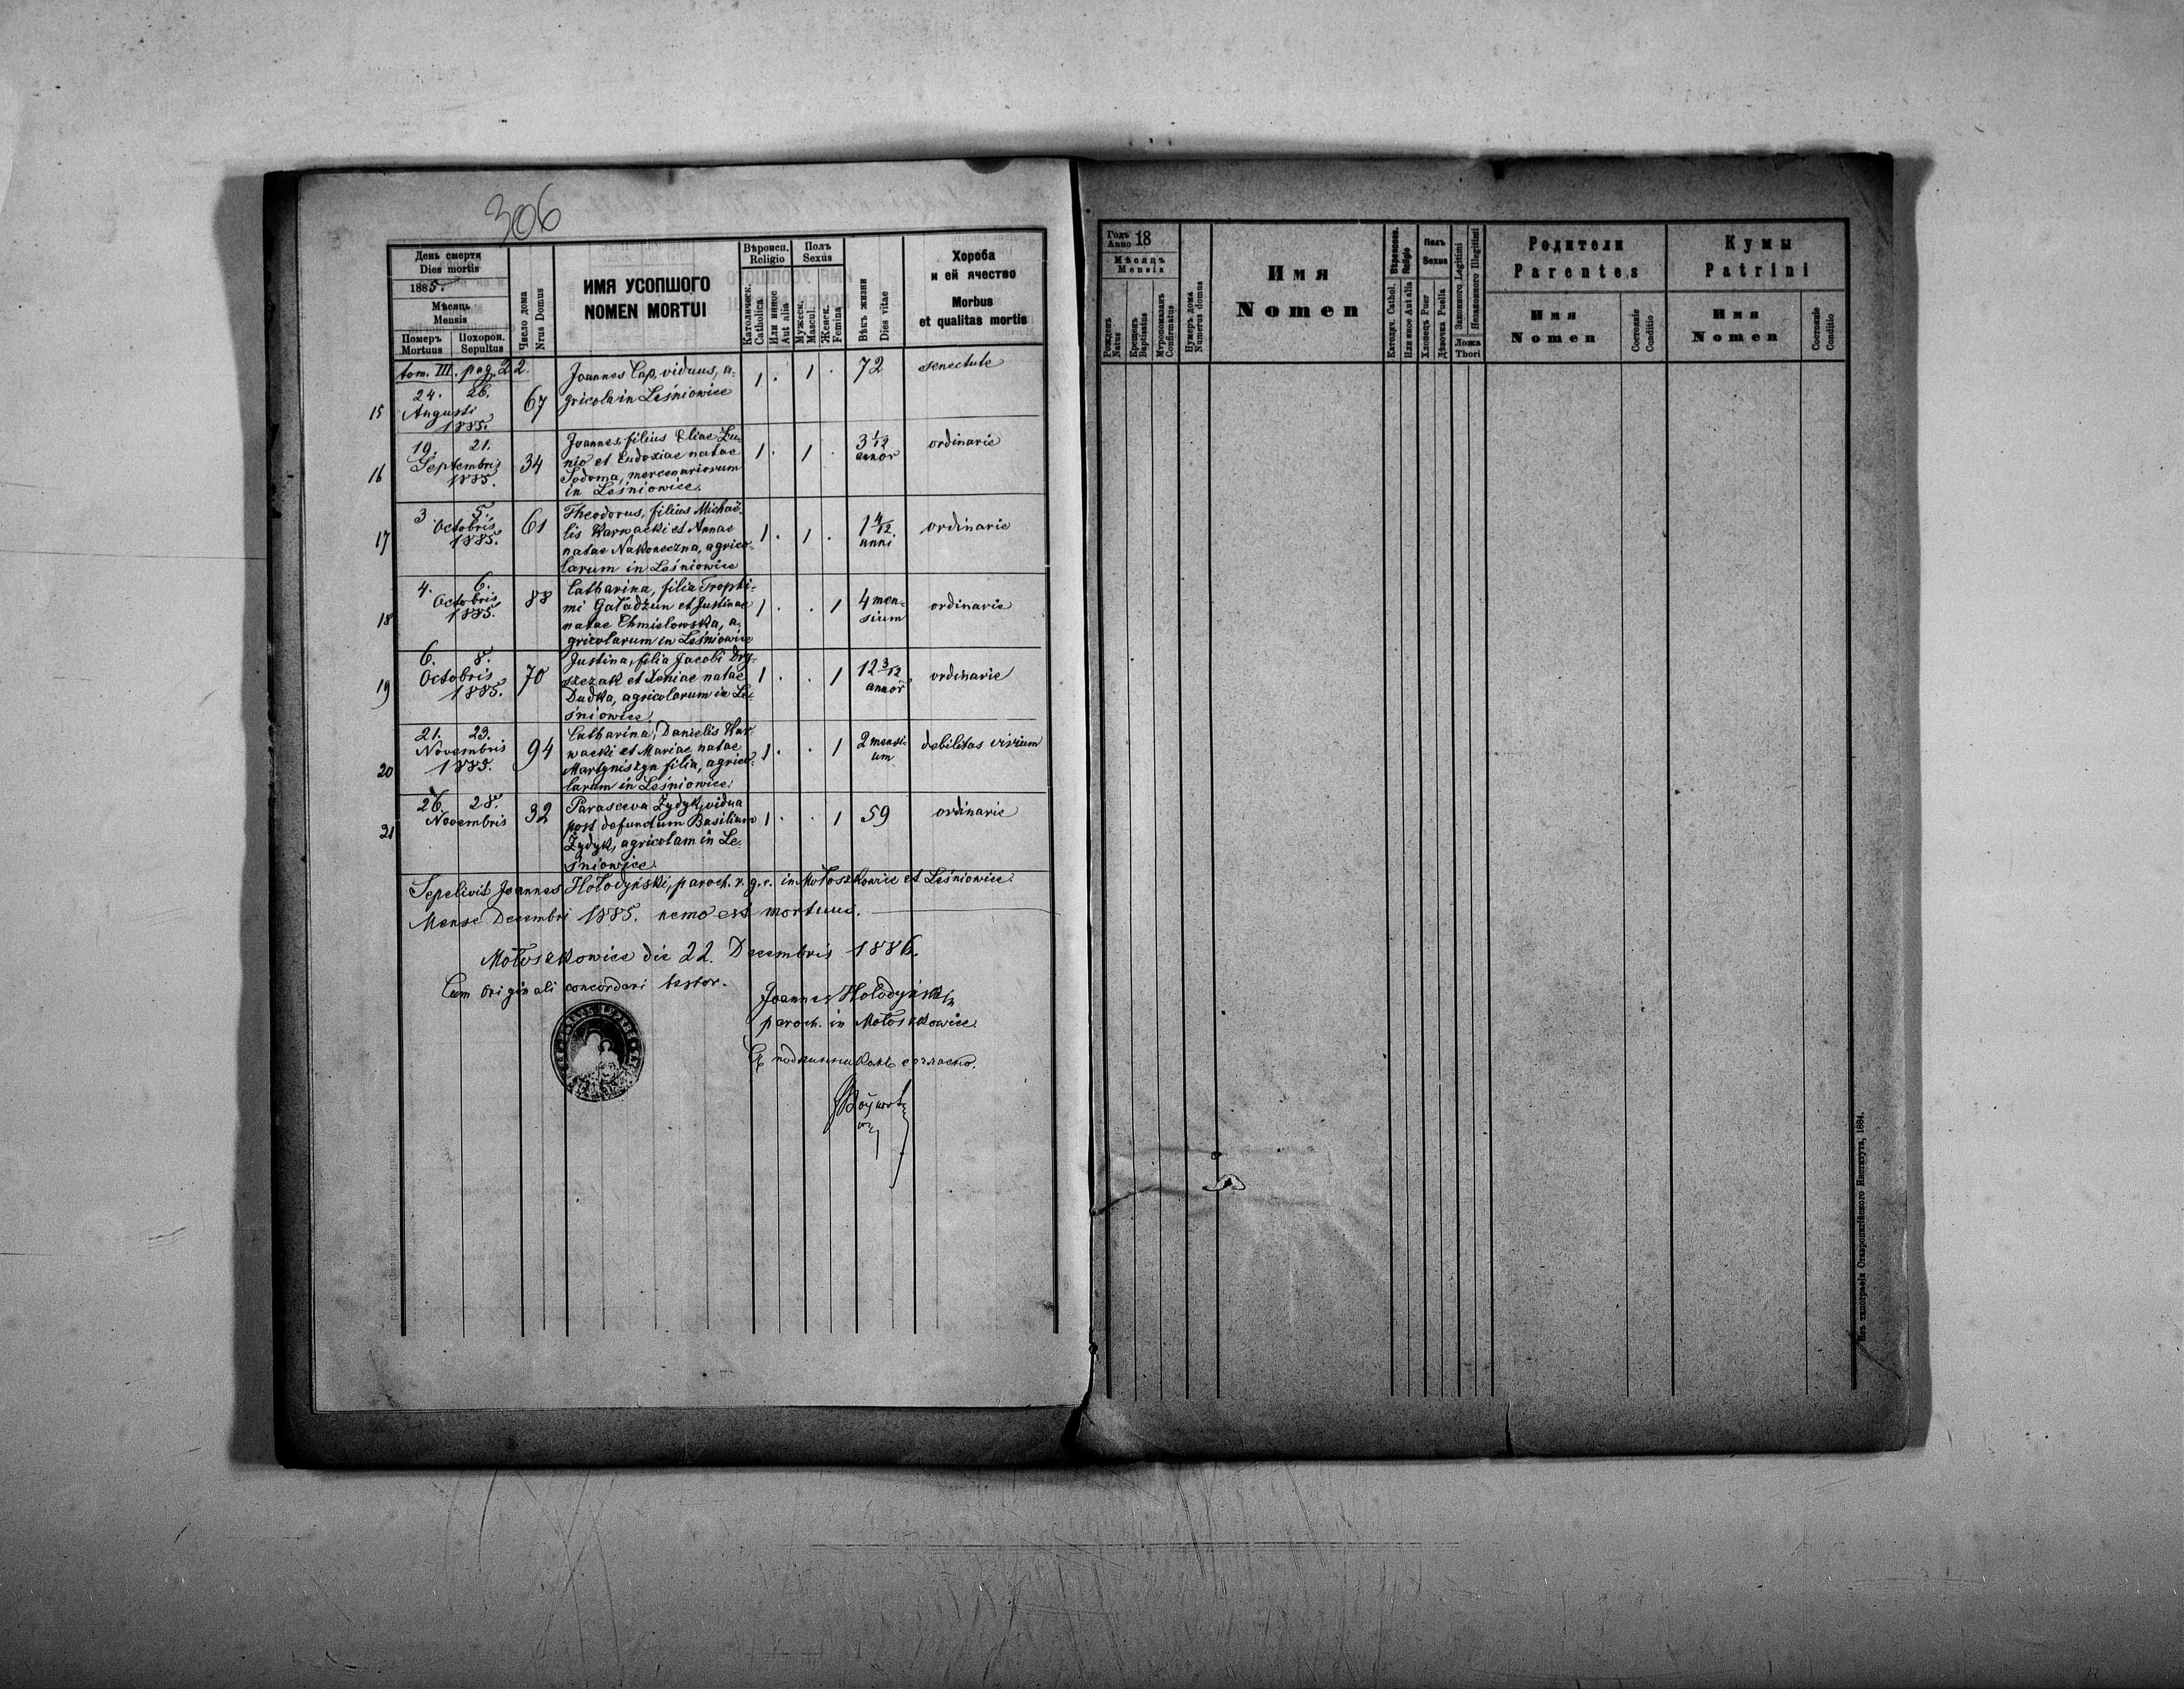 306
День смерти
Dies mortis
1885.
Мѣсяць
Mensis
Померъ
Mortuus
Похорон.
Sepultus
Число дома
Nrus Domus
ИМЯ УСОПШОГО
NOMEN MORTUI
Вѣроисп.
Religio
Католическ.
Catholica
Или инное
Aut alia
Полъ
Sexus
Мужеск.
Mascul.
Женск.
Femina
Вѣкъ жизни
Dies vitae
Хороба
и ей ячество
Morbus
et qualitas mortis
tom. III. pag. 22.
15 24. 26. Augusti 1885. 67
Joannes Cap, viduus, a-
gricola in Leśniowice
1 . 1 . 72 senectute
16 19. 21. Septembris 1885. 34
Joannes, filius Eliae Lu-
nio et Eudoxiae natae
Sodoma, mercenariorum
in Leśniowice.
1 . 1 . 3 1/12 annor ordinarie
17 3 5. Octobris 1885. 61
Theodorus, filius Michaë-
lis Karwacki et Annae
natae Nakoneczna, agrico-
larum in Leśniowice
1 . 1 . 1 4/12 anni ordinarie
18 4. 6. Octobris 1885. 88
Catharina, filia Trophi-
mi Gaładżun et Justinae
natae Chmielowska, a-
gricolarum in Leśniowice
1 . . 1 4 men-
sium ordinarie
19 6. 8. Octobris 1885. 70
Justina, filia Jacobi Dry-
szczak et Xeniae natae
Dudka, agricolarum in Le-
śniowice.
1 . . 1 12 3/12 annor ordinarie
20 21. 23. Novembris 1885. 94
Catharina, Danielis Kar-
wacki et Mariae natae
Martyniszyn filia, agrico-
larum in Leśniowice.
1 . . 1 2 mensi-
um debilitas virium
21 26. 28. Novembris 32
Parasceva Żydyk, vidua
post defunctum Basilium
Żydyk, agricolam in Le-
śniowice.
1 . . 1 59 ordinarie
Sepelivit Joannes Hołodyński, paroch. r. g. c. in Mołoszkowice et Leśniowice.
Mense Decembri 1885. nemo est mortuus.
Mołoszkowice die 22. Decembris 1886.
Cum originali concordari testor.
Joannes Hołodyński
paroch. in Mołoszkowice.
Съ подлинникомъ согласно.
Годъ
Anno 18
Мѣсяць
Mensis
Рожденъ
Natus
Крещенъ
Baptisatus
Муропомазанъ
Confirmatus
Нумеръ дома
Numerus domus
Имя
Nomen
Вѣроисповѣд.
Religio
Католич. Cathol.
Или инное Aut alia
Полъ
Sexus
Хлопецъ Puer
Дѣвочка Puella
Законного Legitimi
Незаконного Illegitimi
Ложа
Thori
Родители
Parentes
Имя
Nomen
Состояніе
Conditio
Кумы
Patrini
Имя
Nomen
Состояніе
Conditio
Изъ типографіи Ставропигійского Института, 1884.